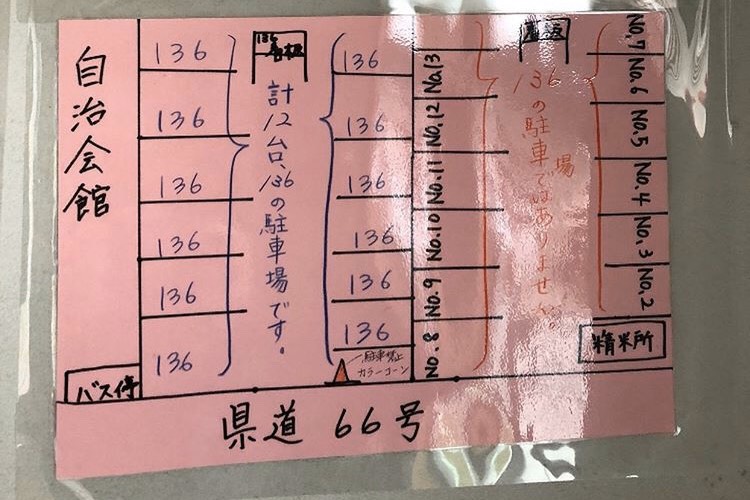 自治会館
バス停
136
136
136
136
136
136
136
看板
計12台、136の駐車場です。
136
136
136
136
136
136
駐車禁止
カラーコーン
No.13
No.12
No.11
No.10
No.9
No.8
136の駐車場ではありません。
No.7
No.6
No.5
No.4
No.3
No.2
精米所
県道 66号